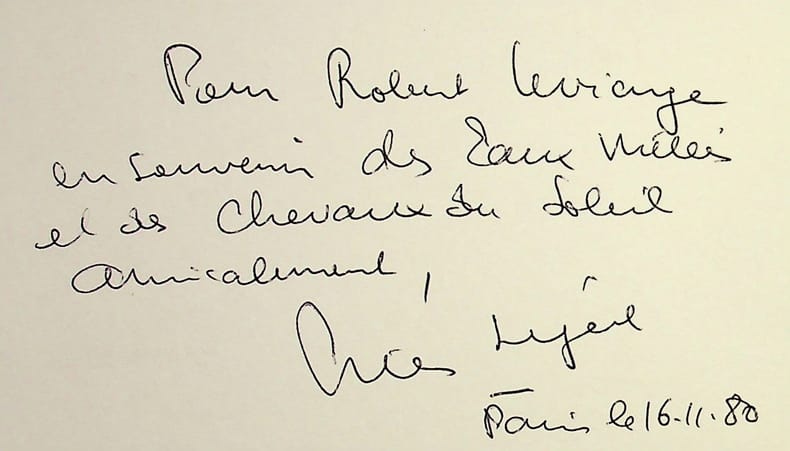 Pour Robert Leviange
en souvenir des Eaux Mêlées
et des Chevaux du Soleil
amicalement,
Paris le 16.11.80